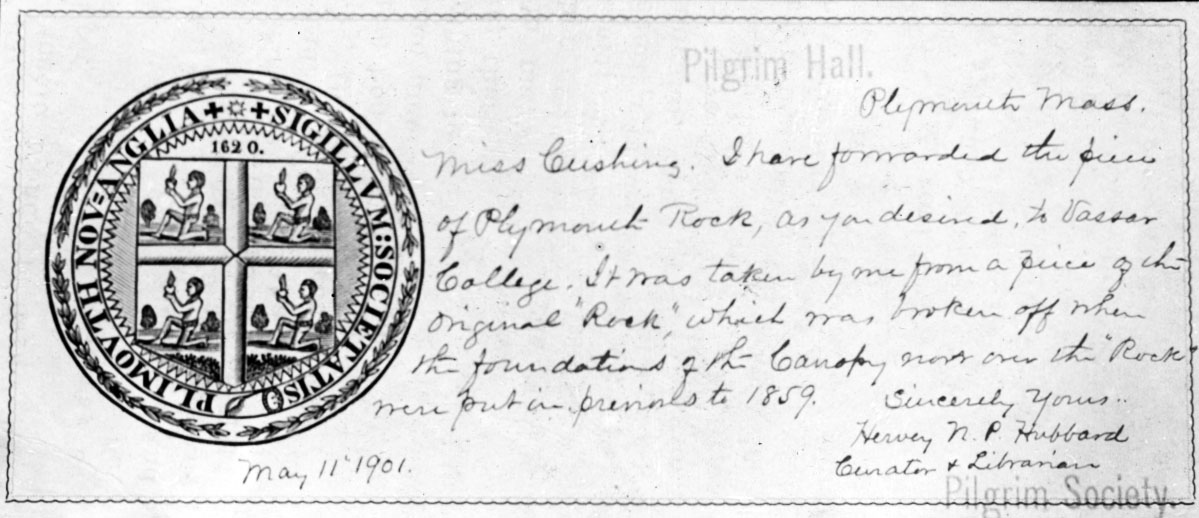 Pilgrim Hall.
Plymouth Mass.
Miss Cushing. I have forwarded the piece
of Plymouth Rock, as you desired, to Vassar
College. It was taken by me from a piece of the
original "Rock", which was broken off when
the foundations of the Canopy now over the "Rock"
were put in previous to 1859.
Sincerely Yours..
Hervey N. P. Hubbard
Curator & Librarian
Pilgrim Society.
May 11 1901.
SIGILLVM: SOCIETATIS PLIMOVTH NOV=ANGLIA
1620.